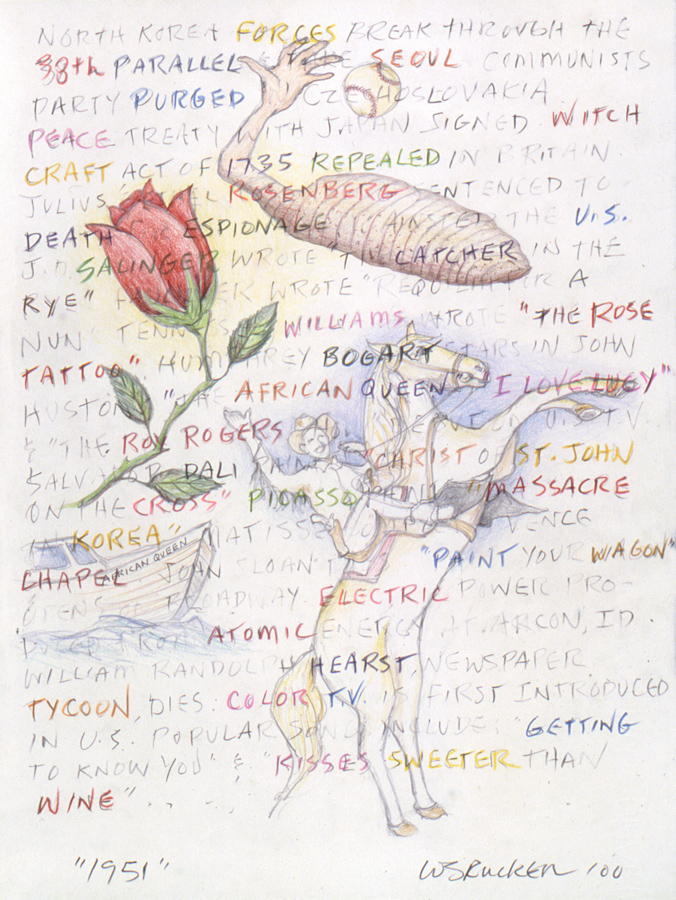 NORTH KOREA FORCES BREAK THROUGH THE
38th PARALLEL SEOUL COMMUNISTS
PARTY PURGED CZECHOSLOVAKIA
PEACE TREATY WITH JAPAN SIGNED. WITCH
CRAFT ACT OF 1735 REPEALED IN BRITAIN.
JULIUS ROSENBERG SENTENCED TO
DEATH ESPIONAGE AGAINST THE U.S.
J.D. SALINGER WROTE "THE CATCHER IN THE
RYE" WROTE "REQUIEM FOR A
NUN" TENNESSEE WILLIAMS WROTE "THE ROSE
TATTOO". HUMPHREY BOGART STARS IN JOHN
HUSTON "THE AFRICAN QUEEN" "I LOVE LUCY"
& "THE ROY ROGERS ON U.S. T.V.
SALVADOR DALI PAINTS "CHRIST OF ST. JOHN
ON THE CROSS" PICASSO PAINTS "MASSACRE
IN KOREA" MATISSE VENCE
CHAPEL JOHN SLOAN "PAINT YOUR WAGON"
AFRICAN QUEEN
OPENS ON BROADWAY. ELECTRIC POWER PRO-
DUCED FROM ATOMIC ENERGY AT ARCON, ID.
WILLIAM RANDOLPH HEARST, NEWSPAPER
TYCOON, DIES. COLOR T.V. IS FIRST INTRODUCED
IN U.S. POPULAR SONGS INCLUDE: "GETTING
TO KNOW YOU" & "KISSES SWEETER THAN
WINE"...
"1951"
WSRUCKER '00